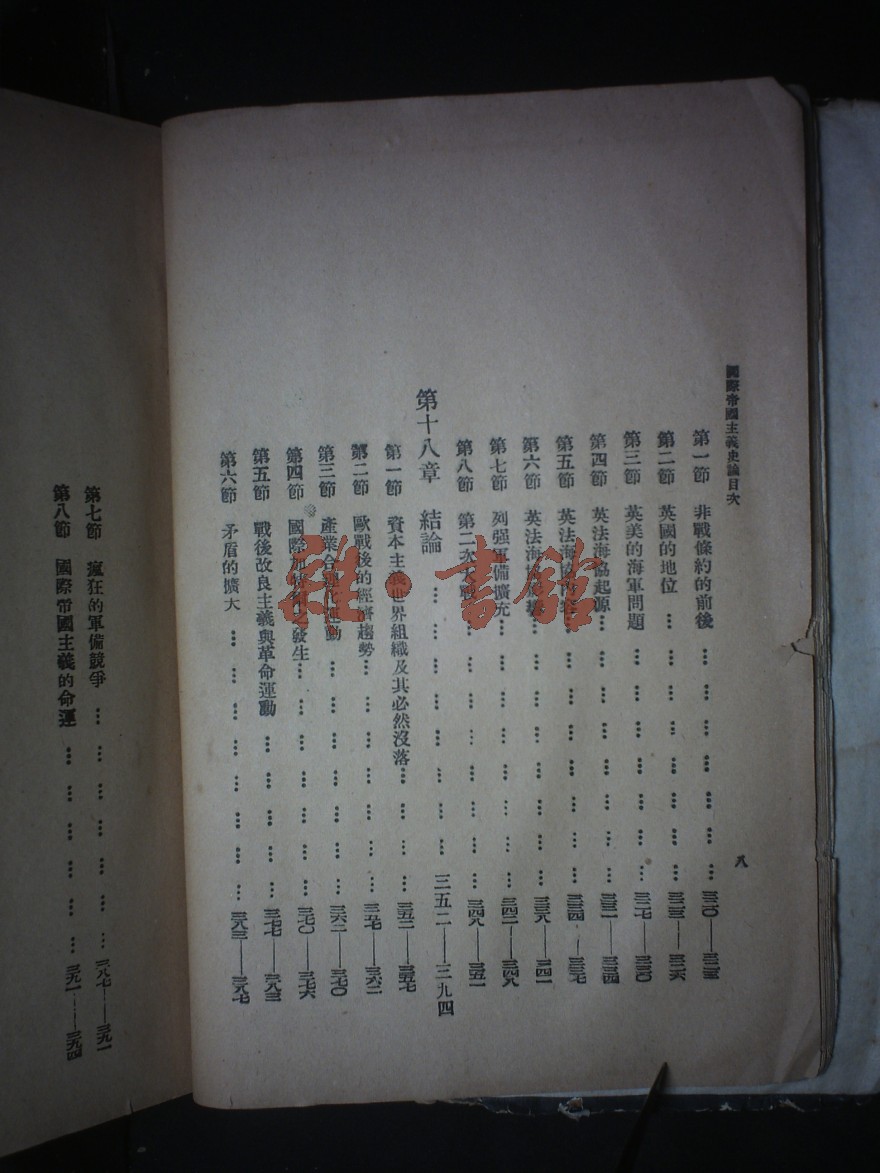 國際帝國主義史論目次
八
第一節 非戰條約的前後 … … … … … … … 三二〇——三二三
第二節 英國的地位 … … … … … … … … 三二三——三二六
第三節 英美的海軍問題 … … … … … … … 三二七——三三〇
第四節 英法海協起源 … … … … … … … 三三一——三三四
第五節 英法海協內容 … … … … … … … 三三四——三三七
第六節 英法海協 … … … … … … … 三三八——三四一
第七節 列强軍備擴充 … … … … … … … 三四二——三四八
第八節 第二次大戰 … … … … … … … 三四八——三五一
第十八章 結論 … … … … … … … … 三五二——三九四
第一節 資本主義世界組織及其必然沒落 … … … … 三五二——三五七
第二節 歐戰後的經濟趨勢 … … … … … … … 三五七——三六二
第三節 產業合理化運動 … … … … … … … 三六二——三七〇
第四節 國際加特爾之發生 … … … … … … 三七〇——三七六
第五節 戰後改良主義與革命運動 … … … … … 三七七——三八三
第六節 矛盾的擴大 … … … … … … … 三八三——三八七
第七節 瘋狂的軍備競爭 … … … … … … … 三八七——三九一
第八節 國際帝國主義的命運 … … … … … … 三九一——三九四
雜·書館